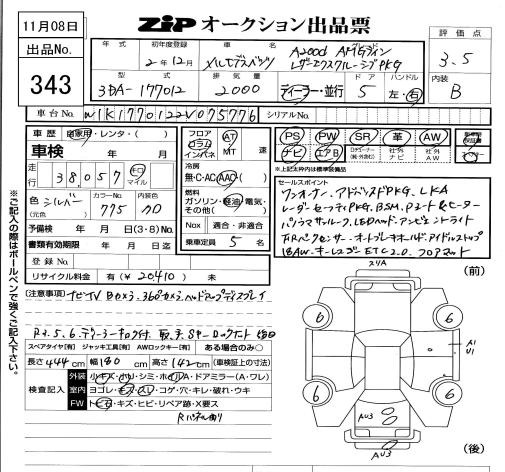 11月08日
ZIP オークション出品票
出品No.
343
年式
初年度登録
車名
グレード
評価点
2年12月
メルセデスベンツ
A200d AMGライン
レザーエクスクルーシブPKG
3.5
型式
排気量
ドア
ハンドル
内装
3DA-177012
2000
ディーラー・並行
5
左・右
B
車台No.
W1K1770122V075776
シリアルNo.
車歴
自家用・レンタ・( )
車検
年 月
走行
38,057
km
マイル
色
シルバー
(元色)
カラーNo.
775
内装色
クロ
予備検
年 月 (3・8)No.
書類有効期限
年 月 日迄
登録No.
リサイクル料金
有(¥20410) 未
フロア
コラム
インパネ
AT
MT
速
冷房
無・C・AC・AAC
燃料
ガソリン・軽油・電気・
その他( )
Nox
適合・非適合
乗車定員
5
名
PS
PW
SR
革
AW
ナビ
エアB
社外
ナビ
社外
AW
※上記太枠内は標準装備品
セールスポイント
ワンオーナー、アドバンスドPKG、LKA
レーダーセーフティPKG、BSM、Pシート&ヒーター
パノラマサンルーフ、LEDヘッド、アンビエントライト
F/Rパークセンサー、オートブレーキホールド、アイドルストップ
18AW、キーレスゴー ETC2.0、フロアマット
※ご記入の際はボールペンで強くご記入下さい。
注意事項
ナビTV Bカメラ、360°カメラ、ヘッドアップディスプレイ
スペアタイヤ[有]
ジャッキ工具[有]
AWロックキー[有]
ある場合のみ○
長さ444cm
幅180cm
高さ142cm
(車検証上の寸法)
検査記入
外装
小キズ・小ハコ・シミ・ホイルA・ドアミラー(A・ワレ)
室内
ヨゴレ・キズ・スレ・コゲ・穴・キレ・破れ・ウキ
FW
トビ石・キズ・ヒビ・リペア跡・X要ス
スリA
(前)
6
6
6
6
A1
U1
AU3
AU3
(後)